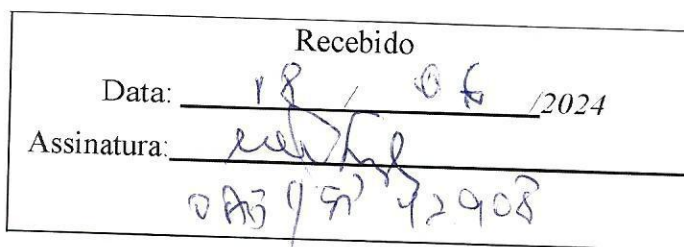 Recebido
Data: 18 / 06 /2024
Assinatura:
OAB/SP 42908